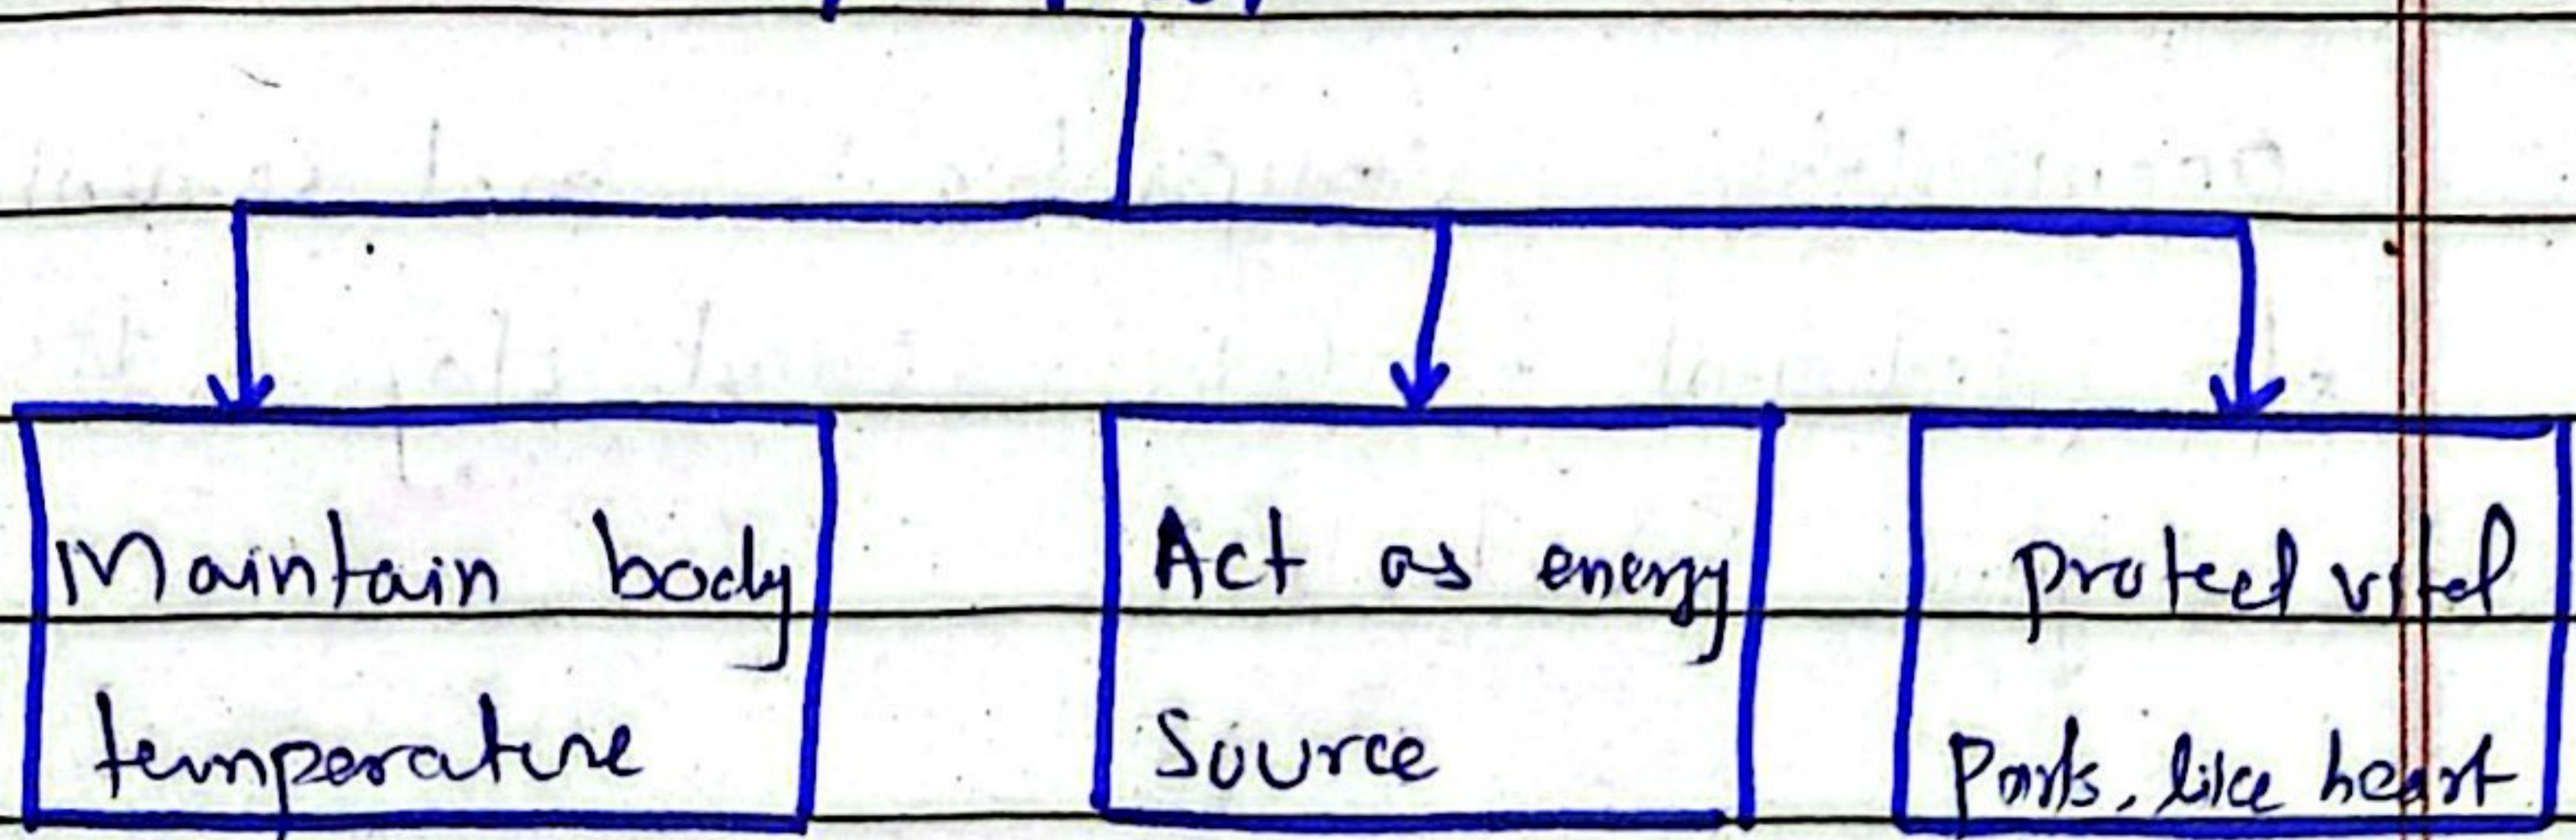 Maintain body
temperature
Act as energy
Source
protect vital
Parts, like heart